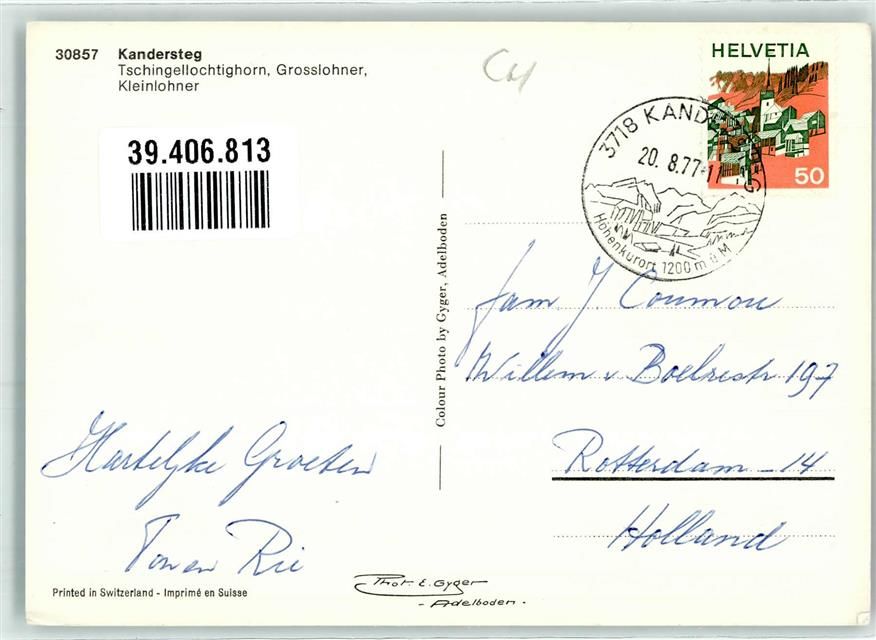 30857 Kandersteg
Tschingellochtighorn, Grosslohner,
Kleinlohner
39.406.813
HELVETIA
50
3718 KANDERSTEG
20. 8.77-17
Höhenkurort 1200 m ü M
Colour Photo by Gyger, Adelboden
Fam J. Coumou
Willem v. Boelrestr 197
Rotterdam - 14
Holland
Hartelyke Groeten
Ton en Rie
Printed in Switzerland - Imprimé en Suisse
Phot. E. Gyger
- Adelboden -